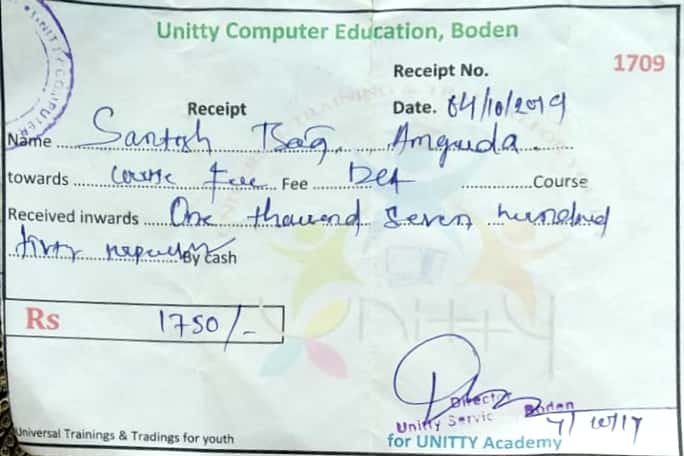 Unitty Computer Education, Boden
Receipt No. 1709
Receipt
Date. 04/10/2019
Name Santosh Bag. Amguda
towards course Fee Fee DCA Course
Received inwards One thousand seven hundred
fifty rupees By cash
Rs 1750/-
Director
Unitty Servic Boden
Universal Trainings & Tradings for youth
for UNITTY Academy